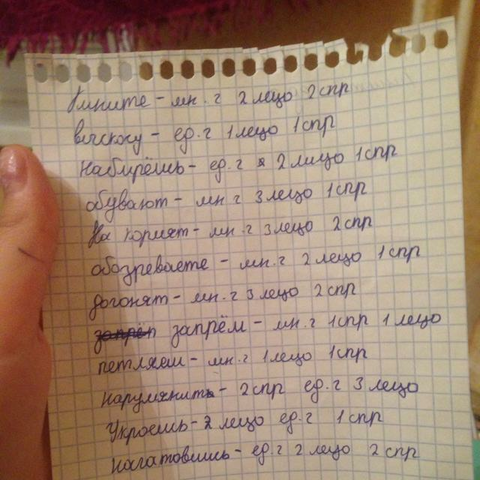 Клините - мн. г 2 лецо 2 спр
выскосу - ед. г 1 лецо 1 спр
Набирёшь - ед. г 2 лицо 1 спр
обувают - мн г 3 лецо 1 спр
На кормят - мн. г 3 лецо 2 спр
обозреваете - мн. г 2 лецо 1 спр
догонят - мн. г 3 лецо 2 спр
запрём - мн. г 1 спр 1 лецо
петляем - мн. г 1 лецо 1 спр
Нарумянить - 2 спр ед. г 3 лецо
Укроешь - 2 лецо ед. г 1 спр
Наготовишь - ед. г 2 лецо 2 спр